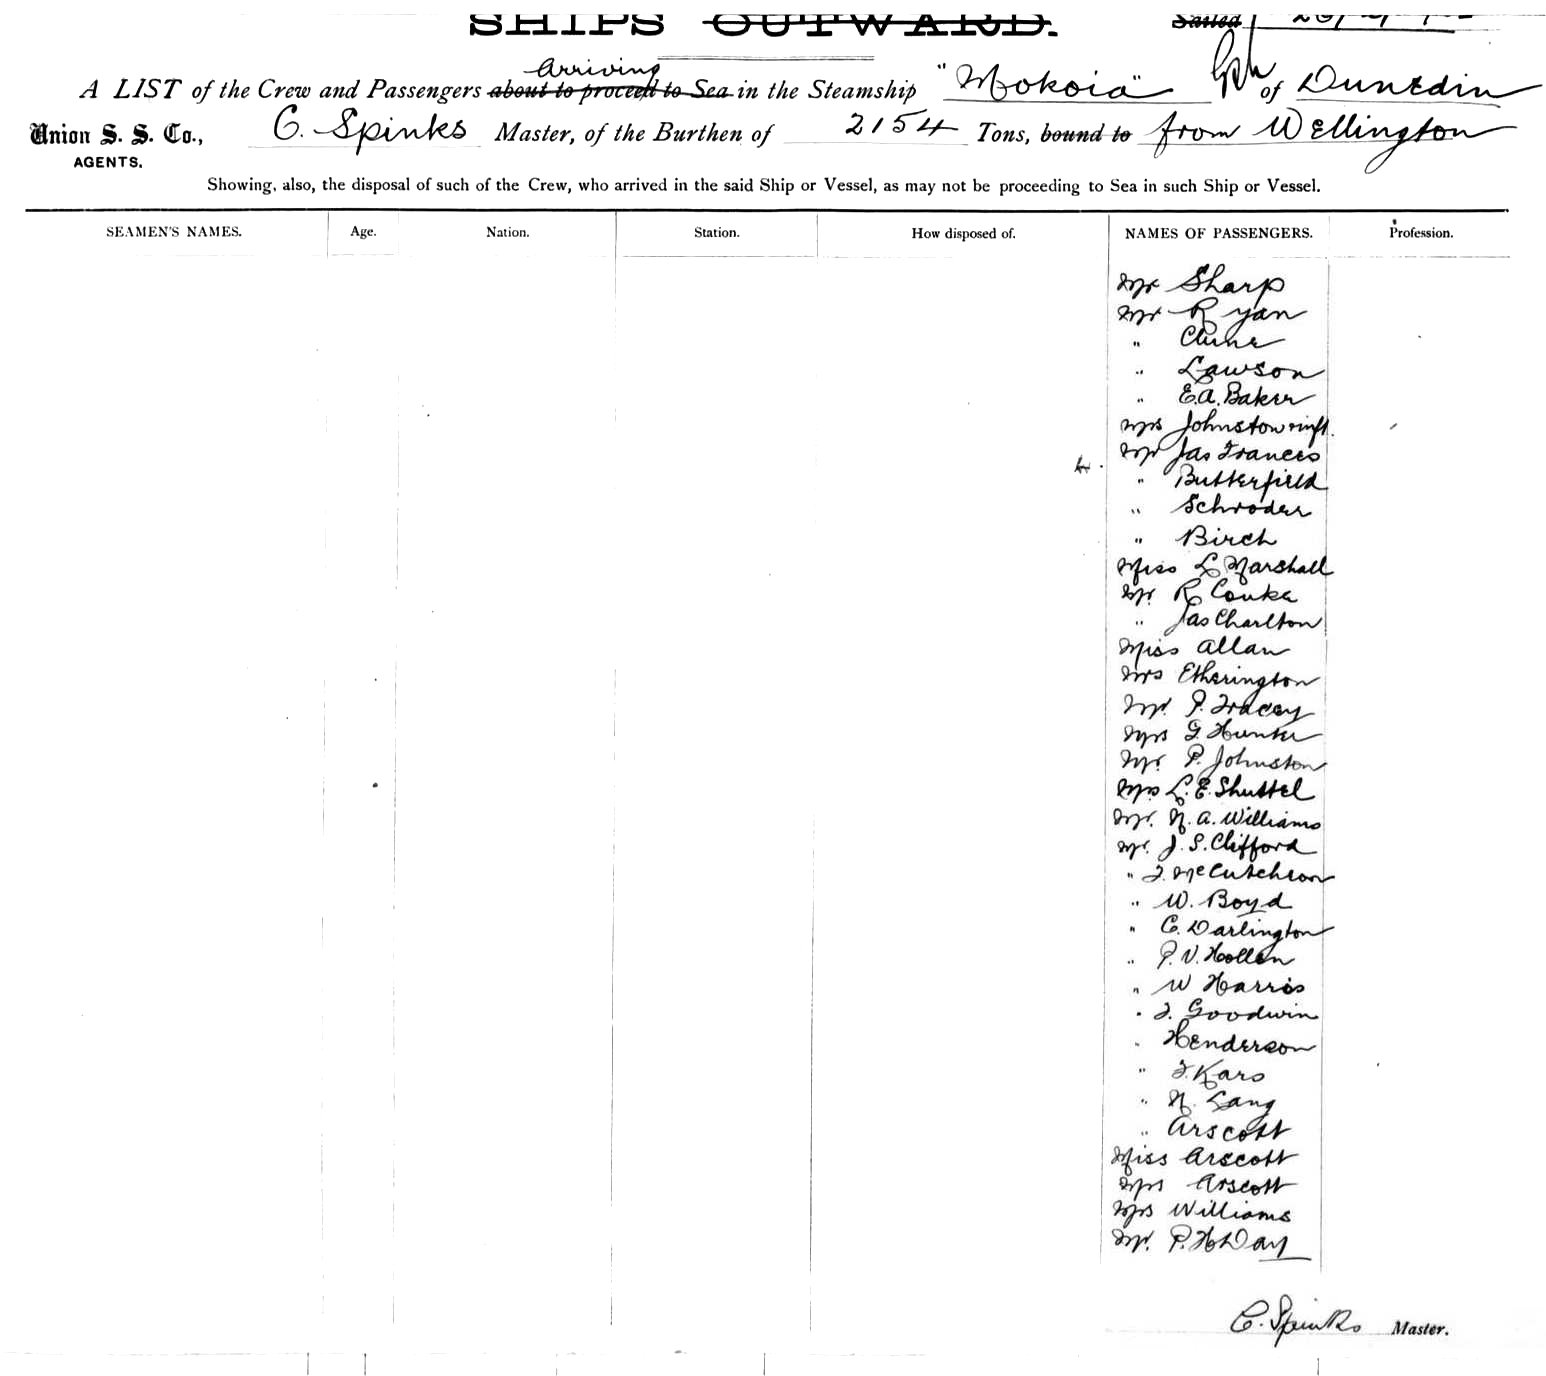 SHIPS OUTWARD.
Sailed
arriving
A LIST of the Crew and Passengers about to proceed to Sea in the Steamship "Mokoia" of Dunedin
Union S. S. Co., C. Spinks Master, of the Burthen of 2154 Tons, bound to from Wellington
AGENTS.
Showing, also, the disposal of such of the Crew, who arrived in the said Ship or Vessel, as may not be proceeding to Sea in such Ship or Vessel.
SEAMEN'S NAMES. Age. Nation. Station. How disposed of. NAMES OF PASSENGERS. Profession.
Mr Sharp
Mr Ryan
" Clune
" Lawson
" E.A. Baker
Mrs Johnston
Mr Jas Frances
" Butterfield
" Schroder
" Birch
Miss L Marshall
Mr. R
" Jas Charlton
Miss Allan
Mrs Etherington
Mr. P. Tracey
Mrs G. Hunter
Mr. P. Johnston
L. E. Shuttel
Mr. N. A. Williams
Mr. J. S. Clifford
" J. McCutcheon
" W. Boyd
" C. Darlington
" P. V. Hollen
" W Harris
" J. Goodwin
" Henderson
" J. Karo
" N. Lang
" Arscott
Miss Arscott
Mrs Arscott
Mrs Williams
Mr. P. H Day
C. Spinks Master.